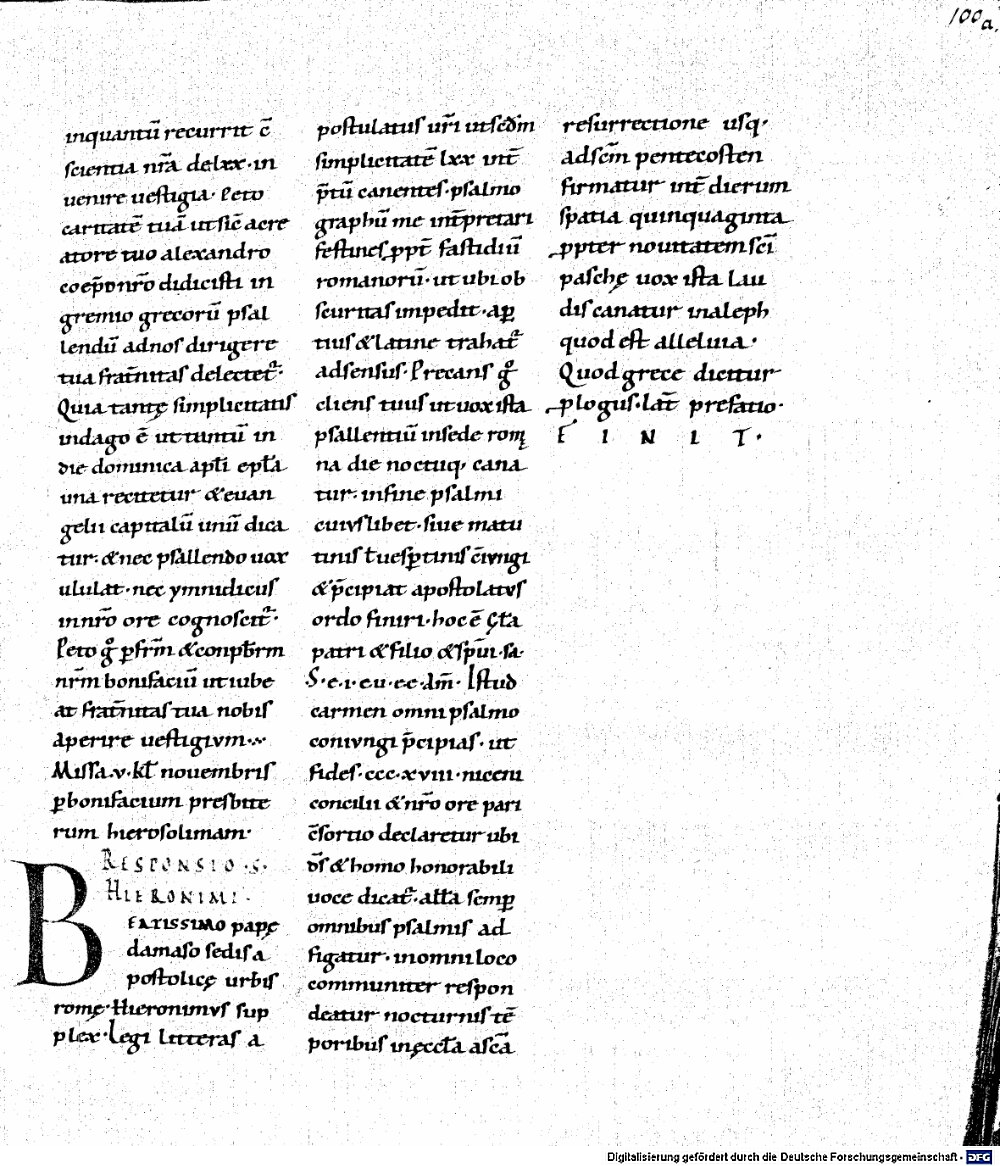 100a.
inquantū recurrit ē
scientia nr̄a delxx·in
uenire uestigia· Peto
caritatē tuā ut sic̄ a cre
atore tuo alexandro
coep̄o nr̄o didicisti in
gremio grecorū psal
lendū adnos dirigere
tua frat̄nitas delectet̄·
Quia tantę simplicitatis
indago ē ut tantū in
die dominica apłi epła
una recitetur & euan
gelii capitalū unū dica
tur·& nec psallendo uox
ululat·nec ymnidicus
innr̄o ore cognoscit̄·
Peto ḡ ꝑfrm̄ & conpb̄rm
nr̄m bonifaciū ut iube
at frat̄nitas tua nobis
aperire uestigium·
Missa·v·kł nouembris
ꝑbonifacium presbite
rum hierosolimam·
RESPONSIO·S·
HIERONIMI·
BEATISSIMO papę
damaso sedis a
postolicę urbis
romę·Hieronimus sup
plex·Legi litteras a
postulatus ur̄i ut sedm̄
simplicitatē lxx int̄
p̄tū canentes·psalmo
graphū me int̄pretari
festines ꝓpt̄ fastidiū
romanorū·ut ubi ob
scuritas impedit·aꝑ
tius & latine trahat̄
adsensus·Precans ḡ
cliens tuus ut uox ista
psallentiū insede romę
na die noctuq; cana
tur·infine psalmi
cuiuslibet·siue matu
tinis ł uesꝑtinis c̄iungi
& p̄cipiat apostolatus
ordo finiri·hoc ē gła
patri & filio & spūi·sa·
S·e·i·e u·e c·am̄· Istud
carmen omni psalmo
coniungi p̄cipias·ut
fides·ccc·xviii·niceni
concilii & nr̄o ore pari
c̄sortio declaretur ubi
ds̄ & homo honorabili
uoce dicat̄·ałła semꝑ
omnibus psalmis ad
figatur·inomni loco
communiter respon
deatur nocturnis tē
poribus inęccła a scā
resurrectione usq·
adscm̄ pentecosten
firmatur int̄ dierum
spatia quinquaginta
ꝓpter nouitatem sc̄i
paschę uox ista lau
dis canatur inaleph
quod est alleluia·
Quod grece dicitur
ꝓlogus·lat̄ prefatio·
FINIT·
Digitalisierung gefördert durch die Deutsche Forschungsgemeinschaft - DFG